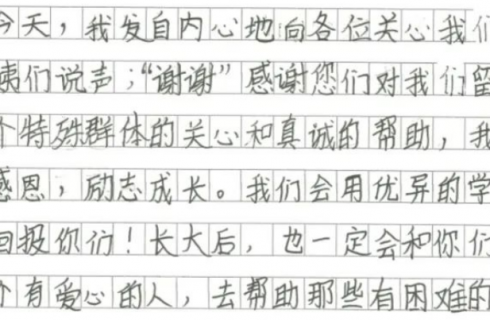 今天，我发自内心地向各位关心我们
姨们说声；“谢谢”感谢您们对我们留
个特殊群体的关心和真诚的帮助，我
感恩，励志成长。我们会用优异的学
回报你们！长大后，也一定会和你们
个有爱心的人，去帮助那些有困难的